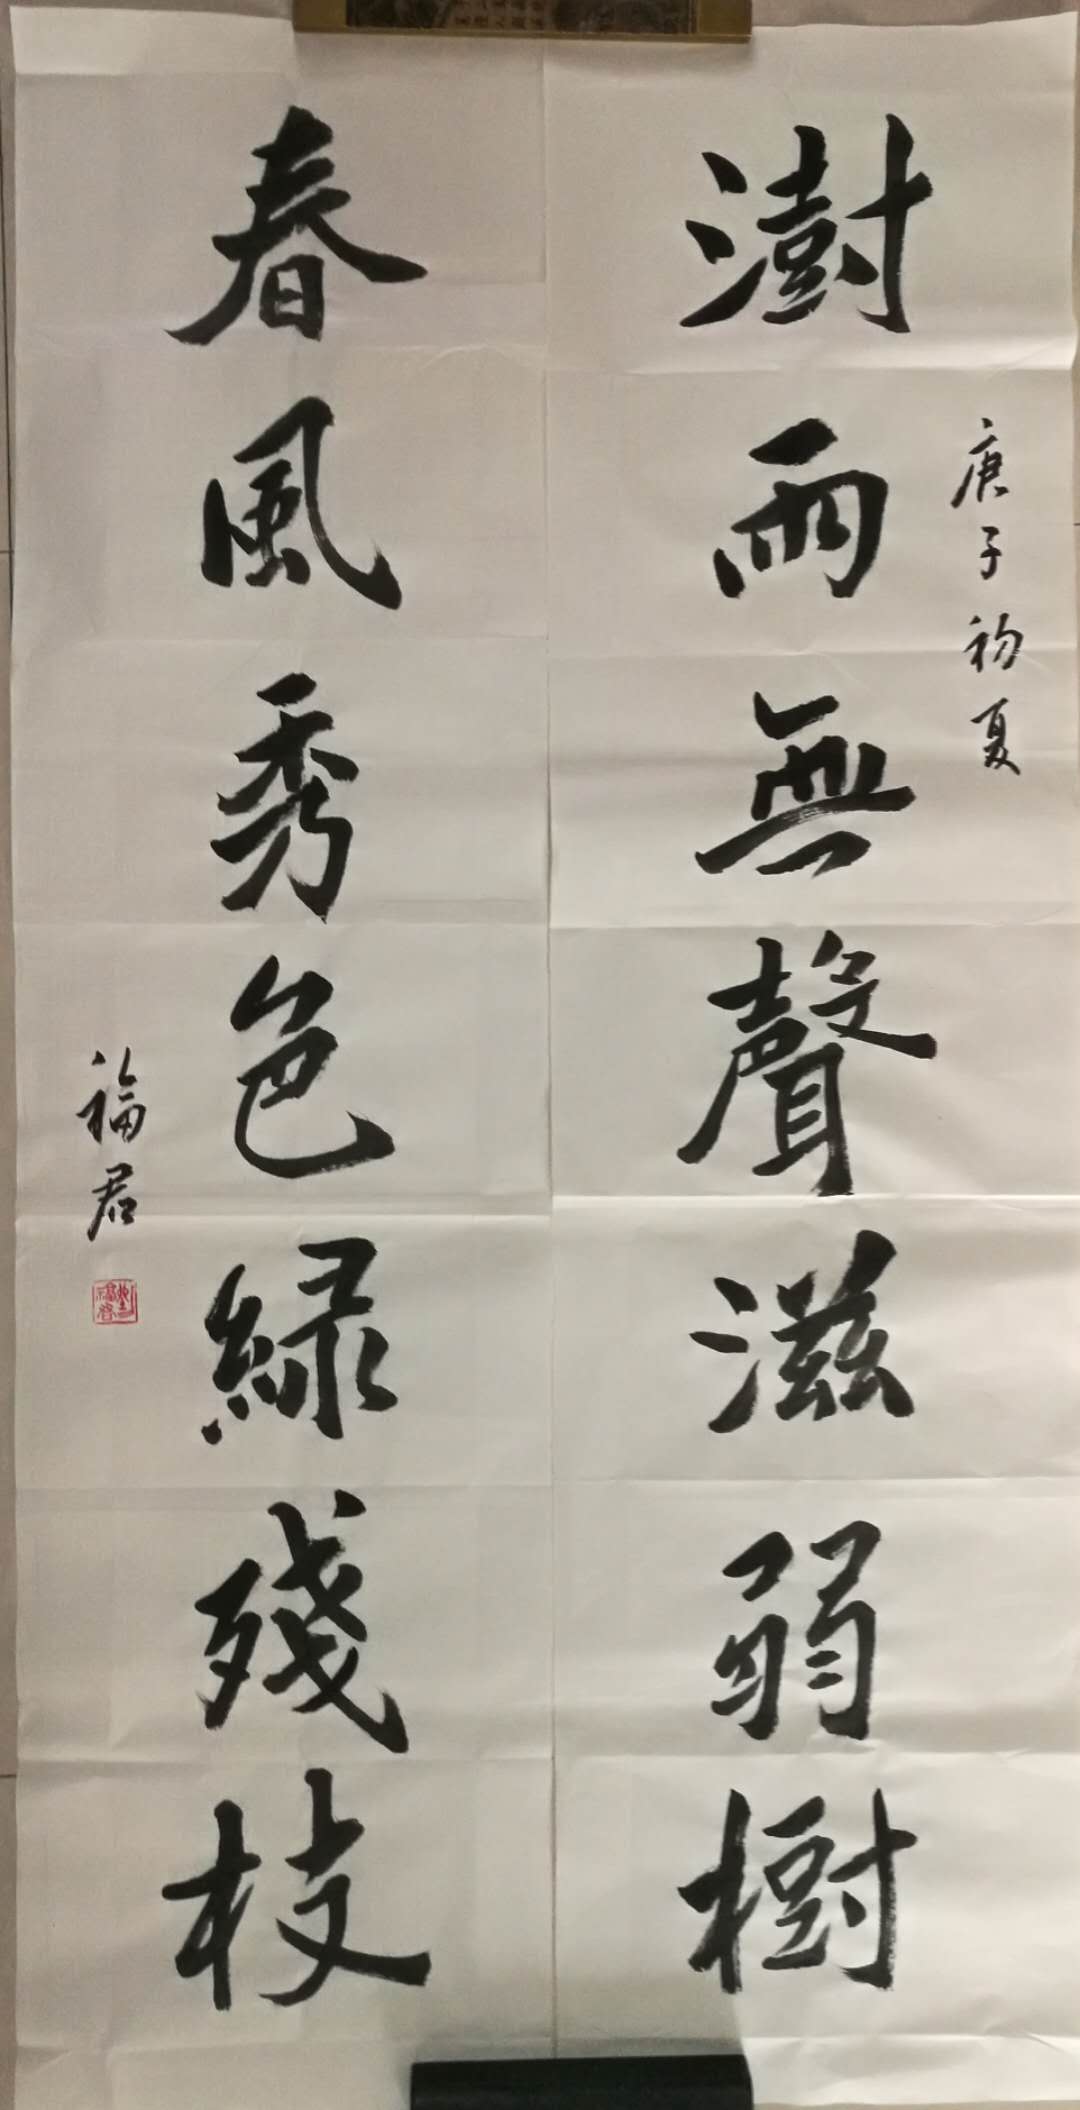 庚子初夏
澍雨無聲滋弱樹
春風秀色綠殘枝
福君